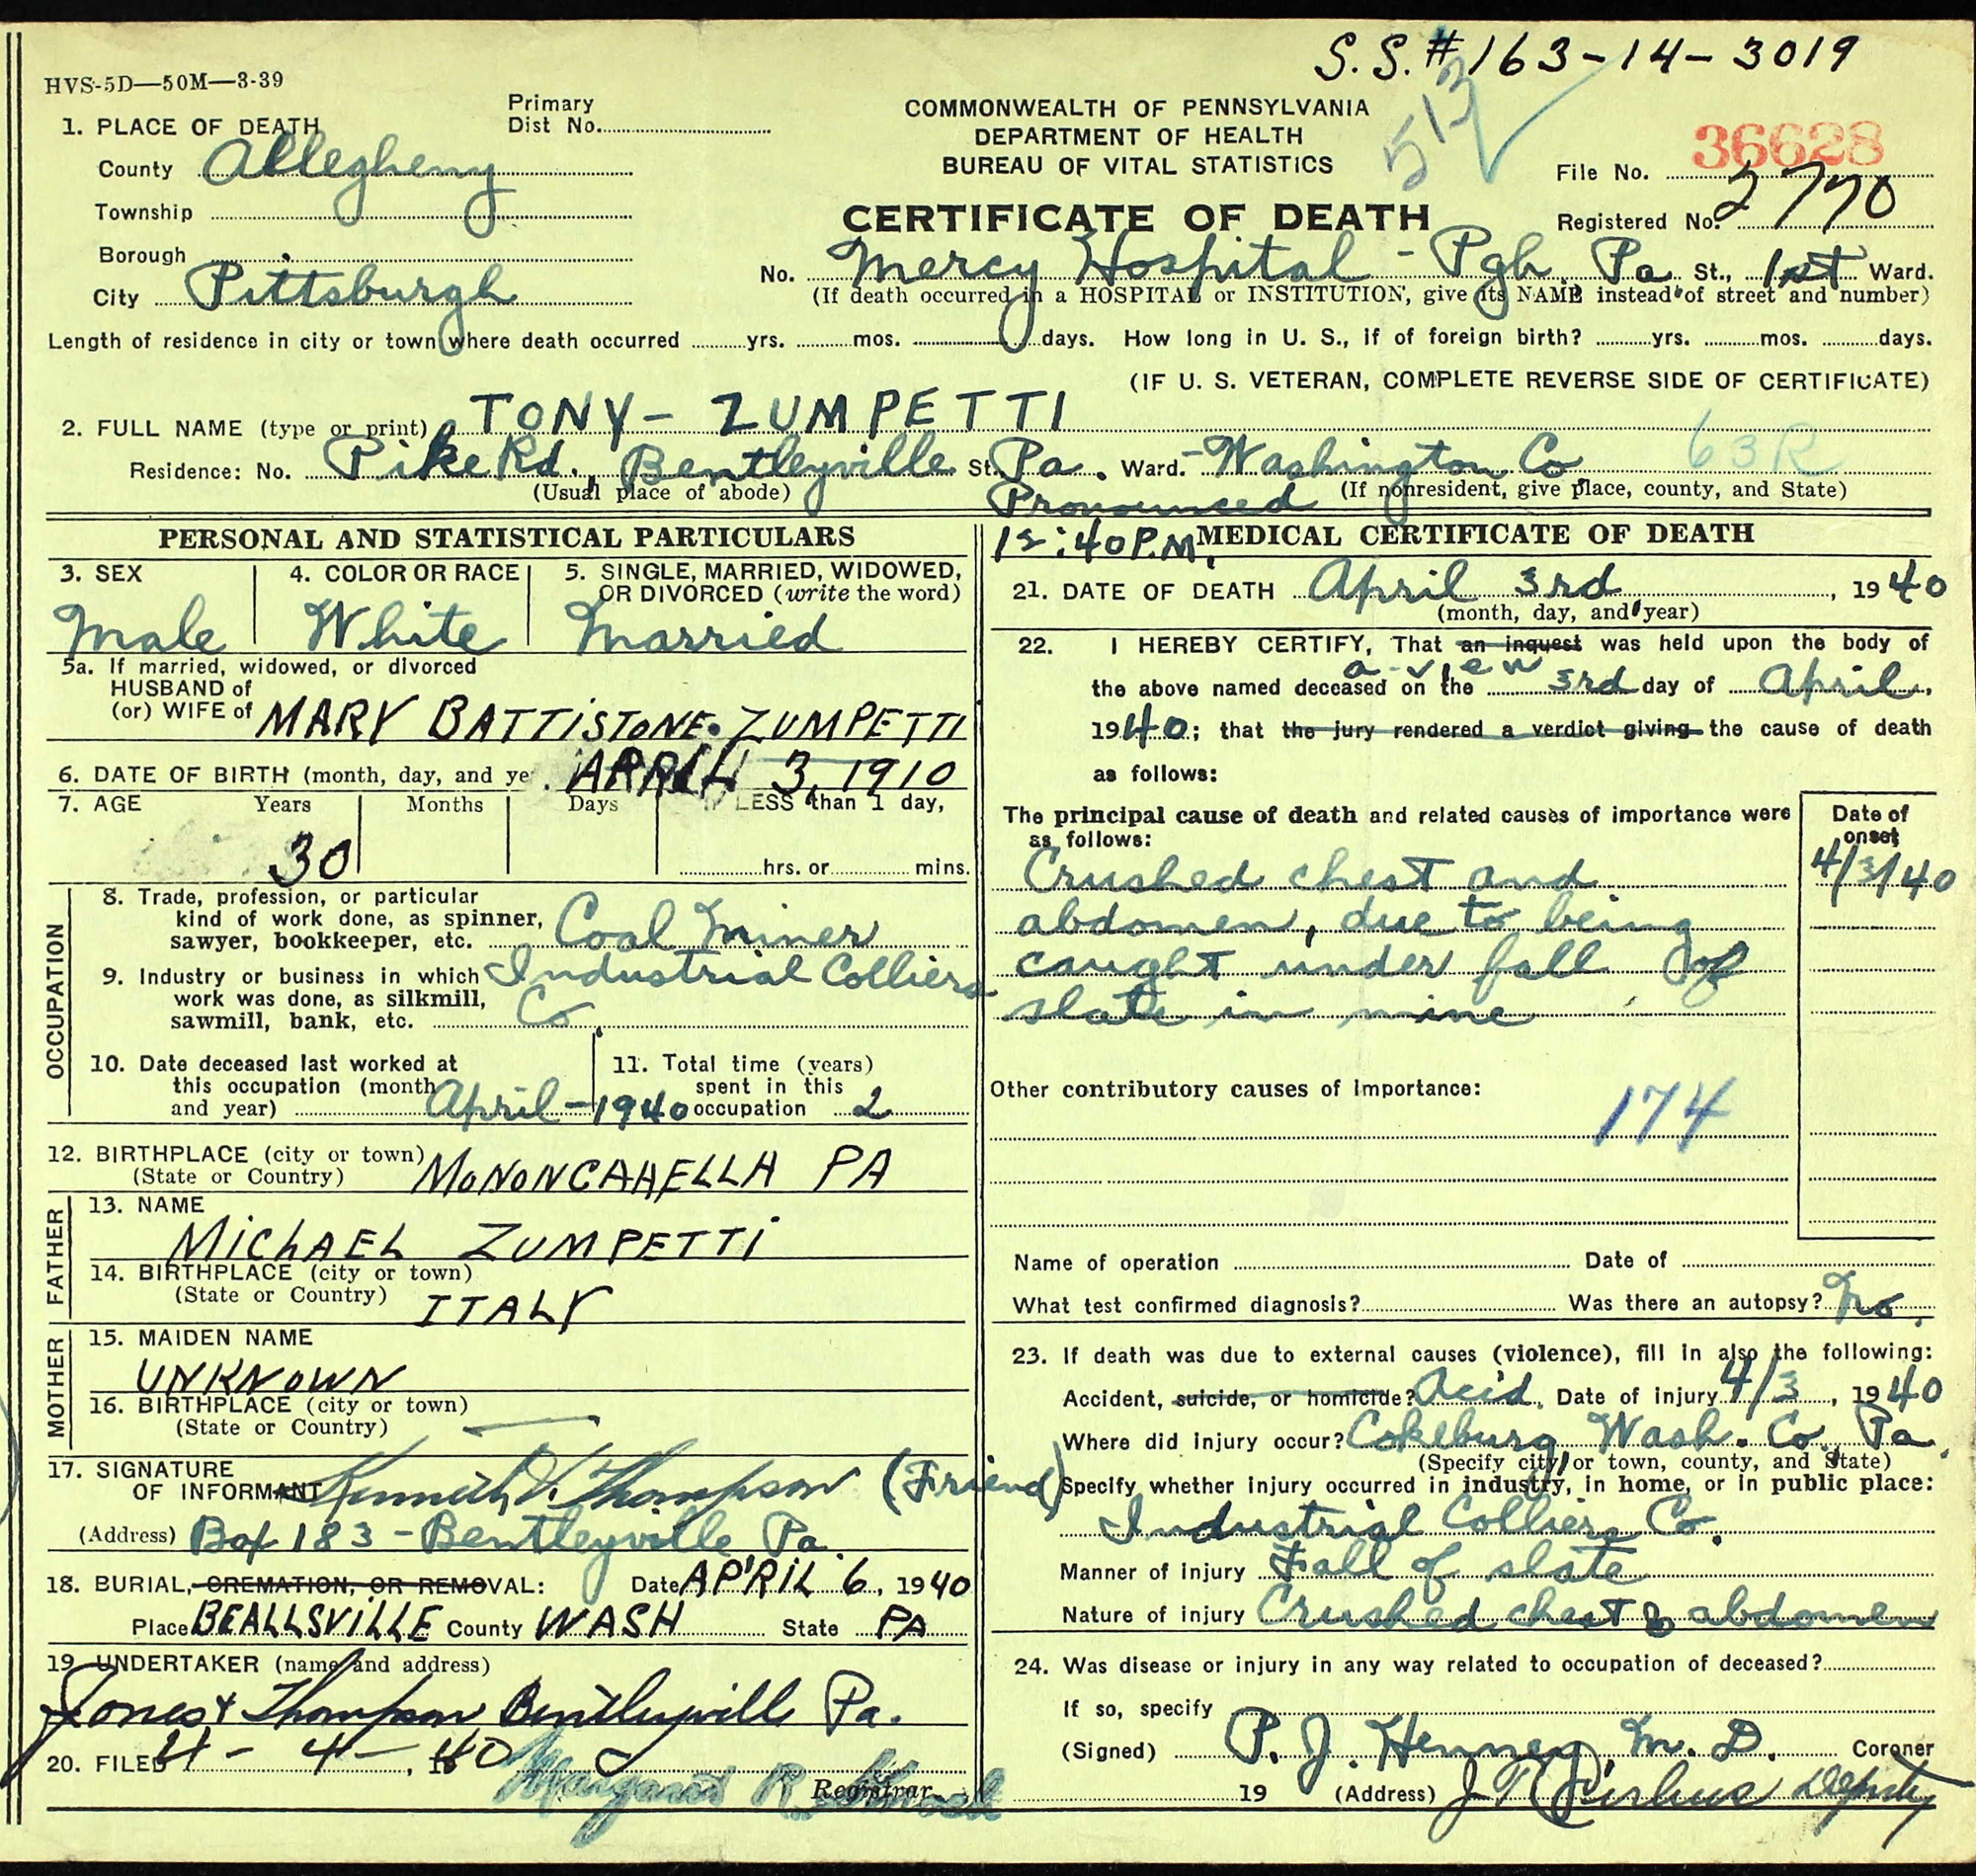 S.S.# 163-14-3019
HVS-5D—50M—3-39
513
1. PLACE OF DEATH
Primary Dist No.
County Allegheny
Township
Borough
City Pittsburgh
COMMONWEALTH OF PENNSYLVANIA
DEPARTMENT OF HEALTH
BUREAU OF VITAL STATISTICS
CERTIFICATE OF DEATH
36628
File No.
Registered No. 2770
No. Mercy Hospital - Pgh, Pa St., 1st Ward.
(If death occurred in a HOSPITAL or INSTITUTION, give its NAME instead of street and number)
Length of residence in city or town where death occurred yrs. mos. days. How long in U. S., if of foreign birth? yrs. mos. days.
(IF U. S. VETERAN, COMPLETE REVERSE SIDE OF CERTIFICATE)
2. FULL NAME (type or print) TONY- ZUMPETTI
Residence: No. Pike Rd., Bentleyville St. Pa. Ward.- Washington Co. 63R
(Usual place of abode) (If nonresident, give place, county, and State)
PERSONAL AND STATISTICAL PARTICULARS
3. SEX 4. COLOR OR RACE 5. SINGLE, MARRIED, WIDOWED, OR DIVORCED (write the word)
Male White Married
5a. If married, widowed, or divorced
HUSBAND of
(or) WIFE of MARY BATTISTONE. ZUMPETTI
6. DATE OF BIRTH (month, day, and ye APRIL 3, 1910
7. AGE Years Months Days If LESS than 1 day,
30 hrs. or mins.
OCCUPATION
8. Trade, profession, or particular
kind of work done, as spinner,
sawyer, bookkeeper, etc. Coal Miner
9. Industry or business in which Industrial Colliers
work was done, as silkmill,
sawmill, bank, etc. Co.
10. Date deceased last worked at
this occupation (month
and year) April-1940
11. Total time (years)
spent in this
occupation 2
12. BIRTHPLACE (city or town)
(State or Country) MONONCAHELLA PA
FATHER
13. NAME
MICHAEL ZUMPETTI
14. BIRTHPLACE (city or town)
(State or Country) ITALY
MOTHER
15. MAIDEN NAME
UNKNOWN
16. BIRTHPLACE (city or town)
(State or Country)
17. SIGNATURE
OF INFORMANT Kenneth V. Thompson (Friend)
(Address) Box 183 - Bentleyville Pa.
18. BURIAL, CREMATION, OR REMOVAL: Date APRIL 6, 1940
Place BEALLSVILLE County WASH State PA
19. UNDERTAKER (name and address)
Jones & Thompson Bentleyville Pa.
20. FILED 4 - 4 - , 1940
Margaret R. Registrar
Pronounced
12:40 P.M. MEDICAL CERTIFICATE OF DEATH
21. DATE OF DEATH April 3rd, 1940
(month, day, and year)
22. I HEREBY CERTIFY, That an inquest was held upon the body of
a-view
the above named deceased on the 3rd day of April,
1940; that the jury rendered a verdict giving the cause of death
as follows:
The principal cause of death and related causes of importance were
as follows:
Date of onset
Crushed chest and 4/3/40
abdomen, due to being
caught under fall of
slate in mine
Other contributory causes of importance:
174
Name of operation Date of
What test confirmed diagnosis? Was there an autopsy? No.
23. If death was due to external causes (violence), fill in also the following:
Accident, suicide, or homicide? Acid. Date of injury 4/3, 1940
Where did injury occur? Cokeburg, Wash. Co., Pa.
(Specify city or town, county, and State)
Specify whether injury occurred in industry, in home, or in public place:
Industrial Colliers Co.
Manner of injury Fall of slate
Nature of injury Crushed chest & abdomen
24. Was disease or injury in any way related to occupation of deceased?
If so, specify
(Signed) P. J. Henney, M. D. Coroner
19 (Address) Deputy